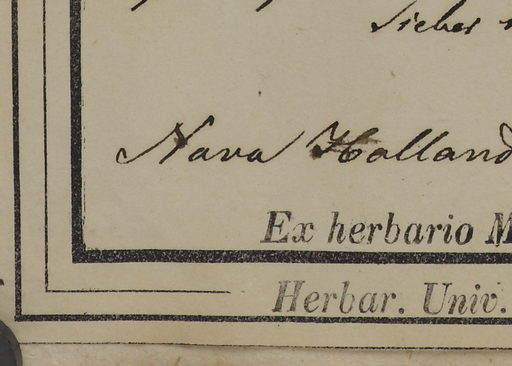 Sieber
Nava Holland
Ex herbario M
Herbar. Univ.